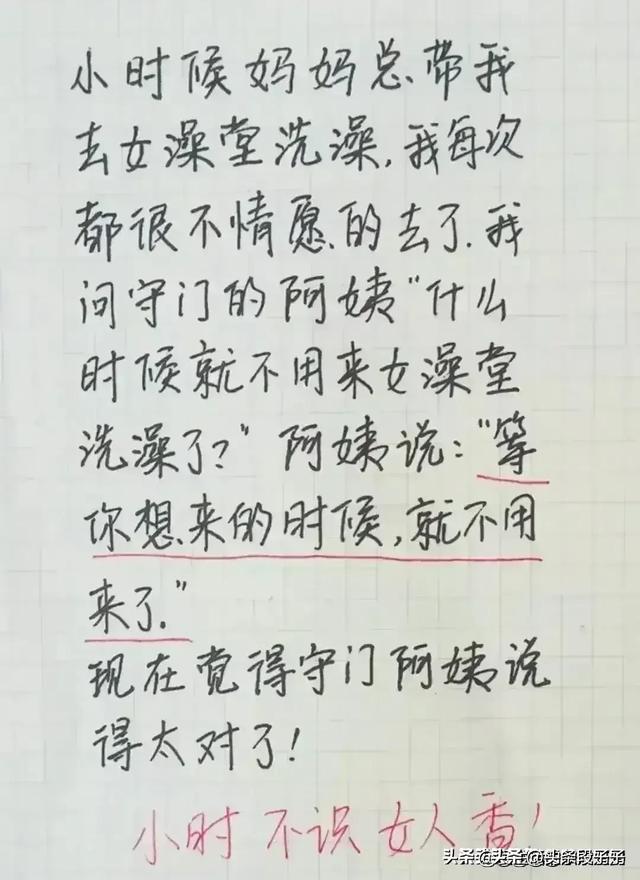 小时候妈妈总带我
去女澡堂洗澡，我每次
都很不情愿的去了．我
问守门的阿姨“什么
时候就不用来女澡堂
洗澡了？”阿姨说：“等
你想来的时候，就不用
来了．”
现在觉得守门阿姨说
得太对了！
小时不识女人香！